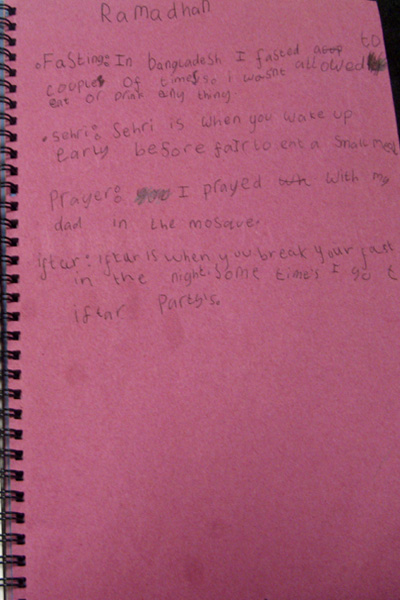 Ramadhan
Fasting: In bangladesh I fasted a to
couple of times so i wasnt allowed
eat or drink any thing
sehri: Sehri is when you wake up
early before fajr to eat a small meal
Prayer: I prayed with my
dad in the mosque.
iftar: iftar is when you break your fast
in the night. Some time's I go t
iftar